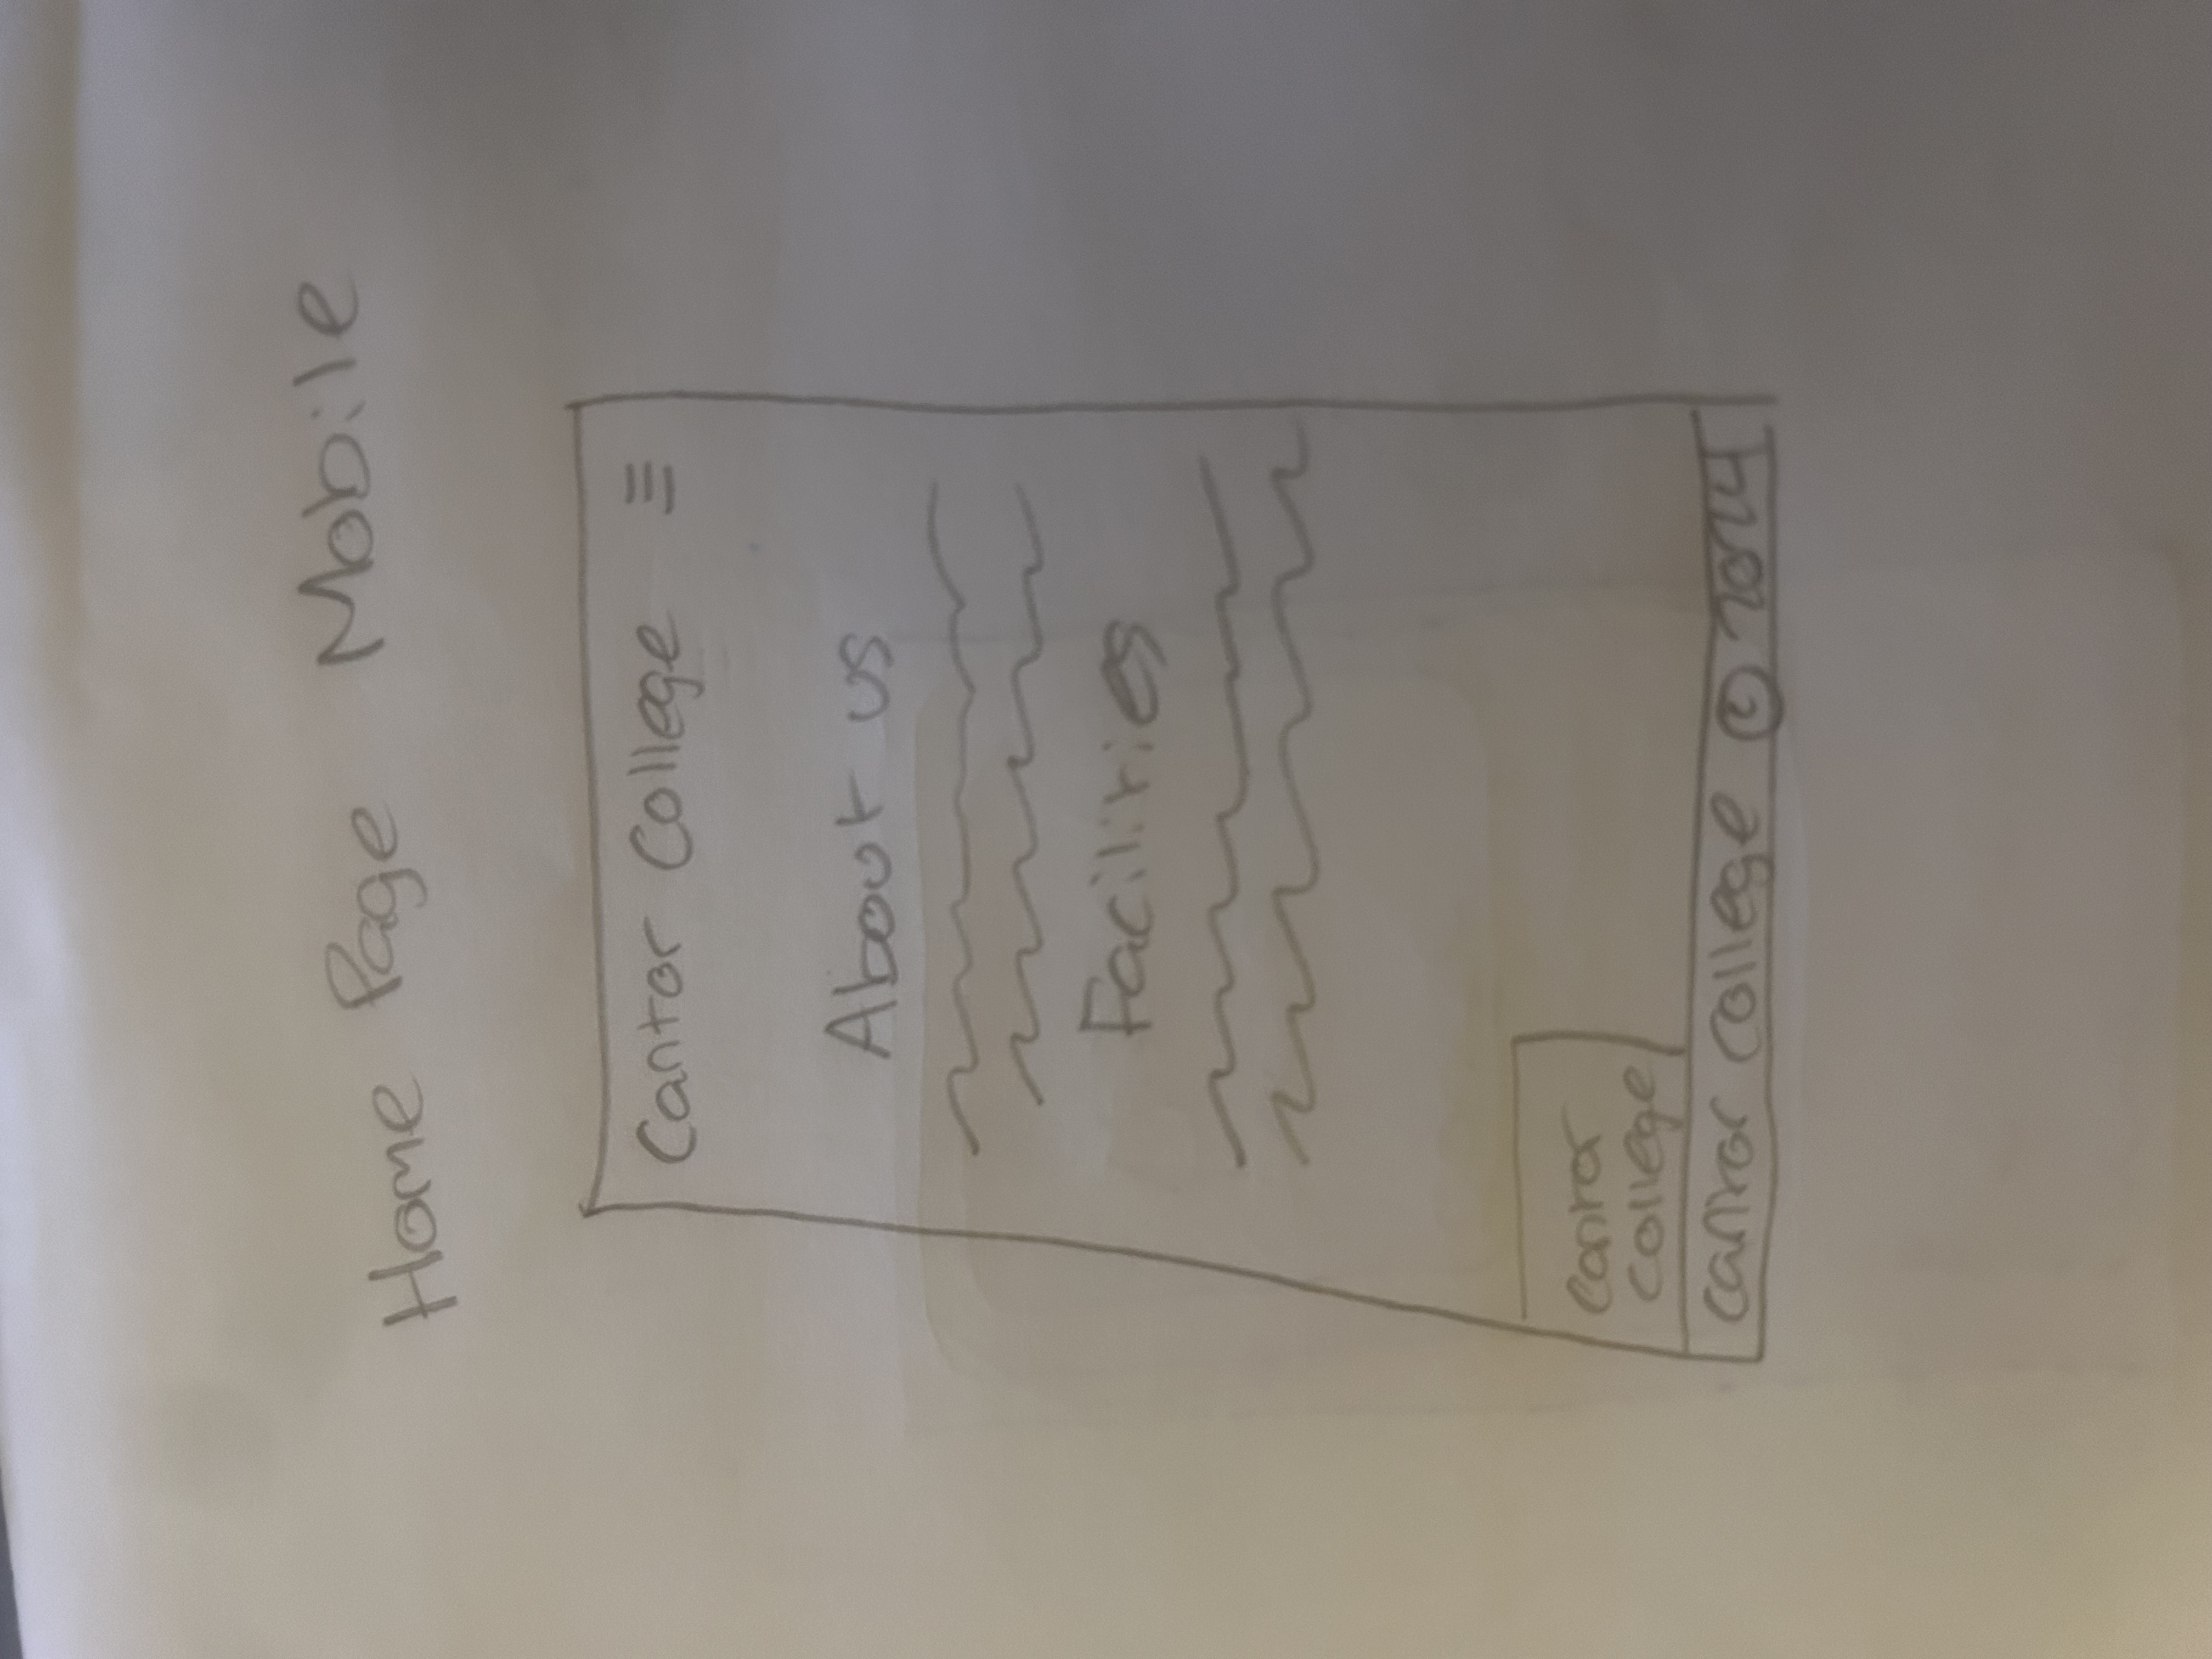 Home Page Mobile
Cantor College
About us
Facilities
Cantor
College
Cantor College © 2024